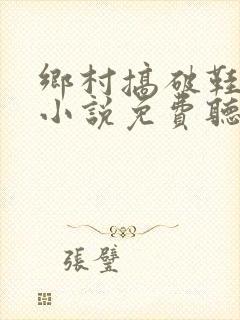 鄉村搞破鞋
小說免費聽
張璧